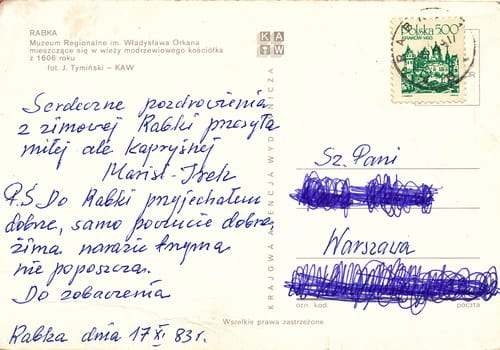 RABKA
Muzeum Regionalne im. Władysława Orkana
mieszczące się w wieży modrzewiowego kościółka
z 1606 roku
fot. J. Tymiński — KAW
KAW
Polska 500
KRAKÓW 1493
Serdeczne pozdrowienia
z zimowej Rabki przesyła
miłej ale kapryśnej
P.S Do Rabki przyjechałem
dobrze, samo poczucie dobre
zima narazie trzyma
nie popuszcza.
Do zobaczenia
Rabka dnia 17 XI 83 r.
KRAJOWA AGENCJA WYDAWNICZA
Sz. Pani
Warszawa
ozn. kod
poczta
Wszelkie prawa zastrzeżone